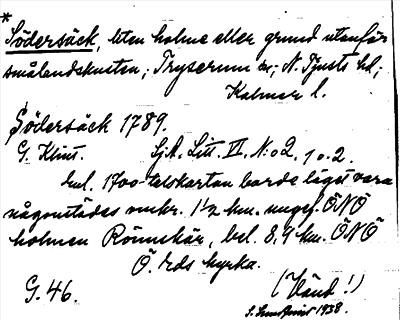 *
Södersäck, liten holme eller grund utanför
smålandskusten; Tryserum sn; N. Tjusts hd;
Kalmar l.
Södersäck 1789.
G. Klint. Sjk. Litt. II. N:o 2, 1 o. 2.
Enl. 1700-talskartan borde läget vara
någonstädes omkr. 1½ km. ungef. ÖNÖ
holmen Rönnskär, bel. 8,9 km. ÖNÖ
Ö. Eds kyrka.
G. 46. (Vänd!)
1938.